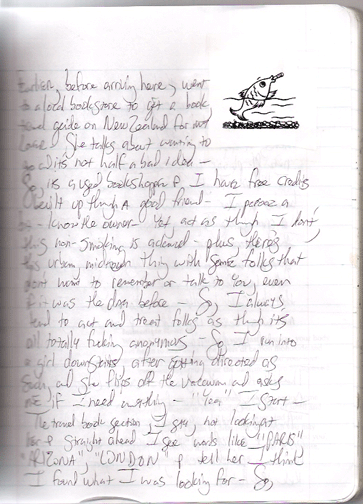 Earlier, before arriving here, went
to a local bookstore to get a book
travel guide on New Zealand for
She talks about wanting to
go it's not half a bad idea –
So, is a used bookshop & I have free credits
built up through a good friend – I peruse a
– know the owner – Yet act as though I don't,
this non-smoking is – plus, there's
this urban, midtown thing with some folks that
don't want to remember or talk to you, even
if it was the day before – So, I always
tend to act and treat folks as though it's
all totally fucking anonymous – So I run into
a girl downstairs after getting directed as
and she flips off the vacuum and asks
me if I need anything – "Yea" I start –
The travel book section I say, not looking at
her & straight ahead I see words like "PARIS"
"ARIZONA", "LONDON" & tell her I think
I found what I was looking for – So,